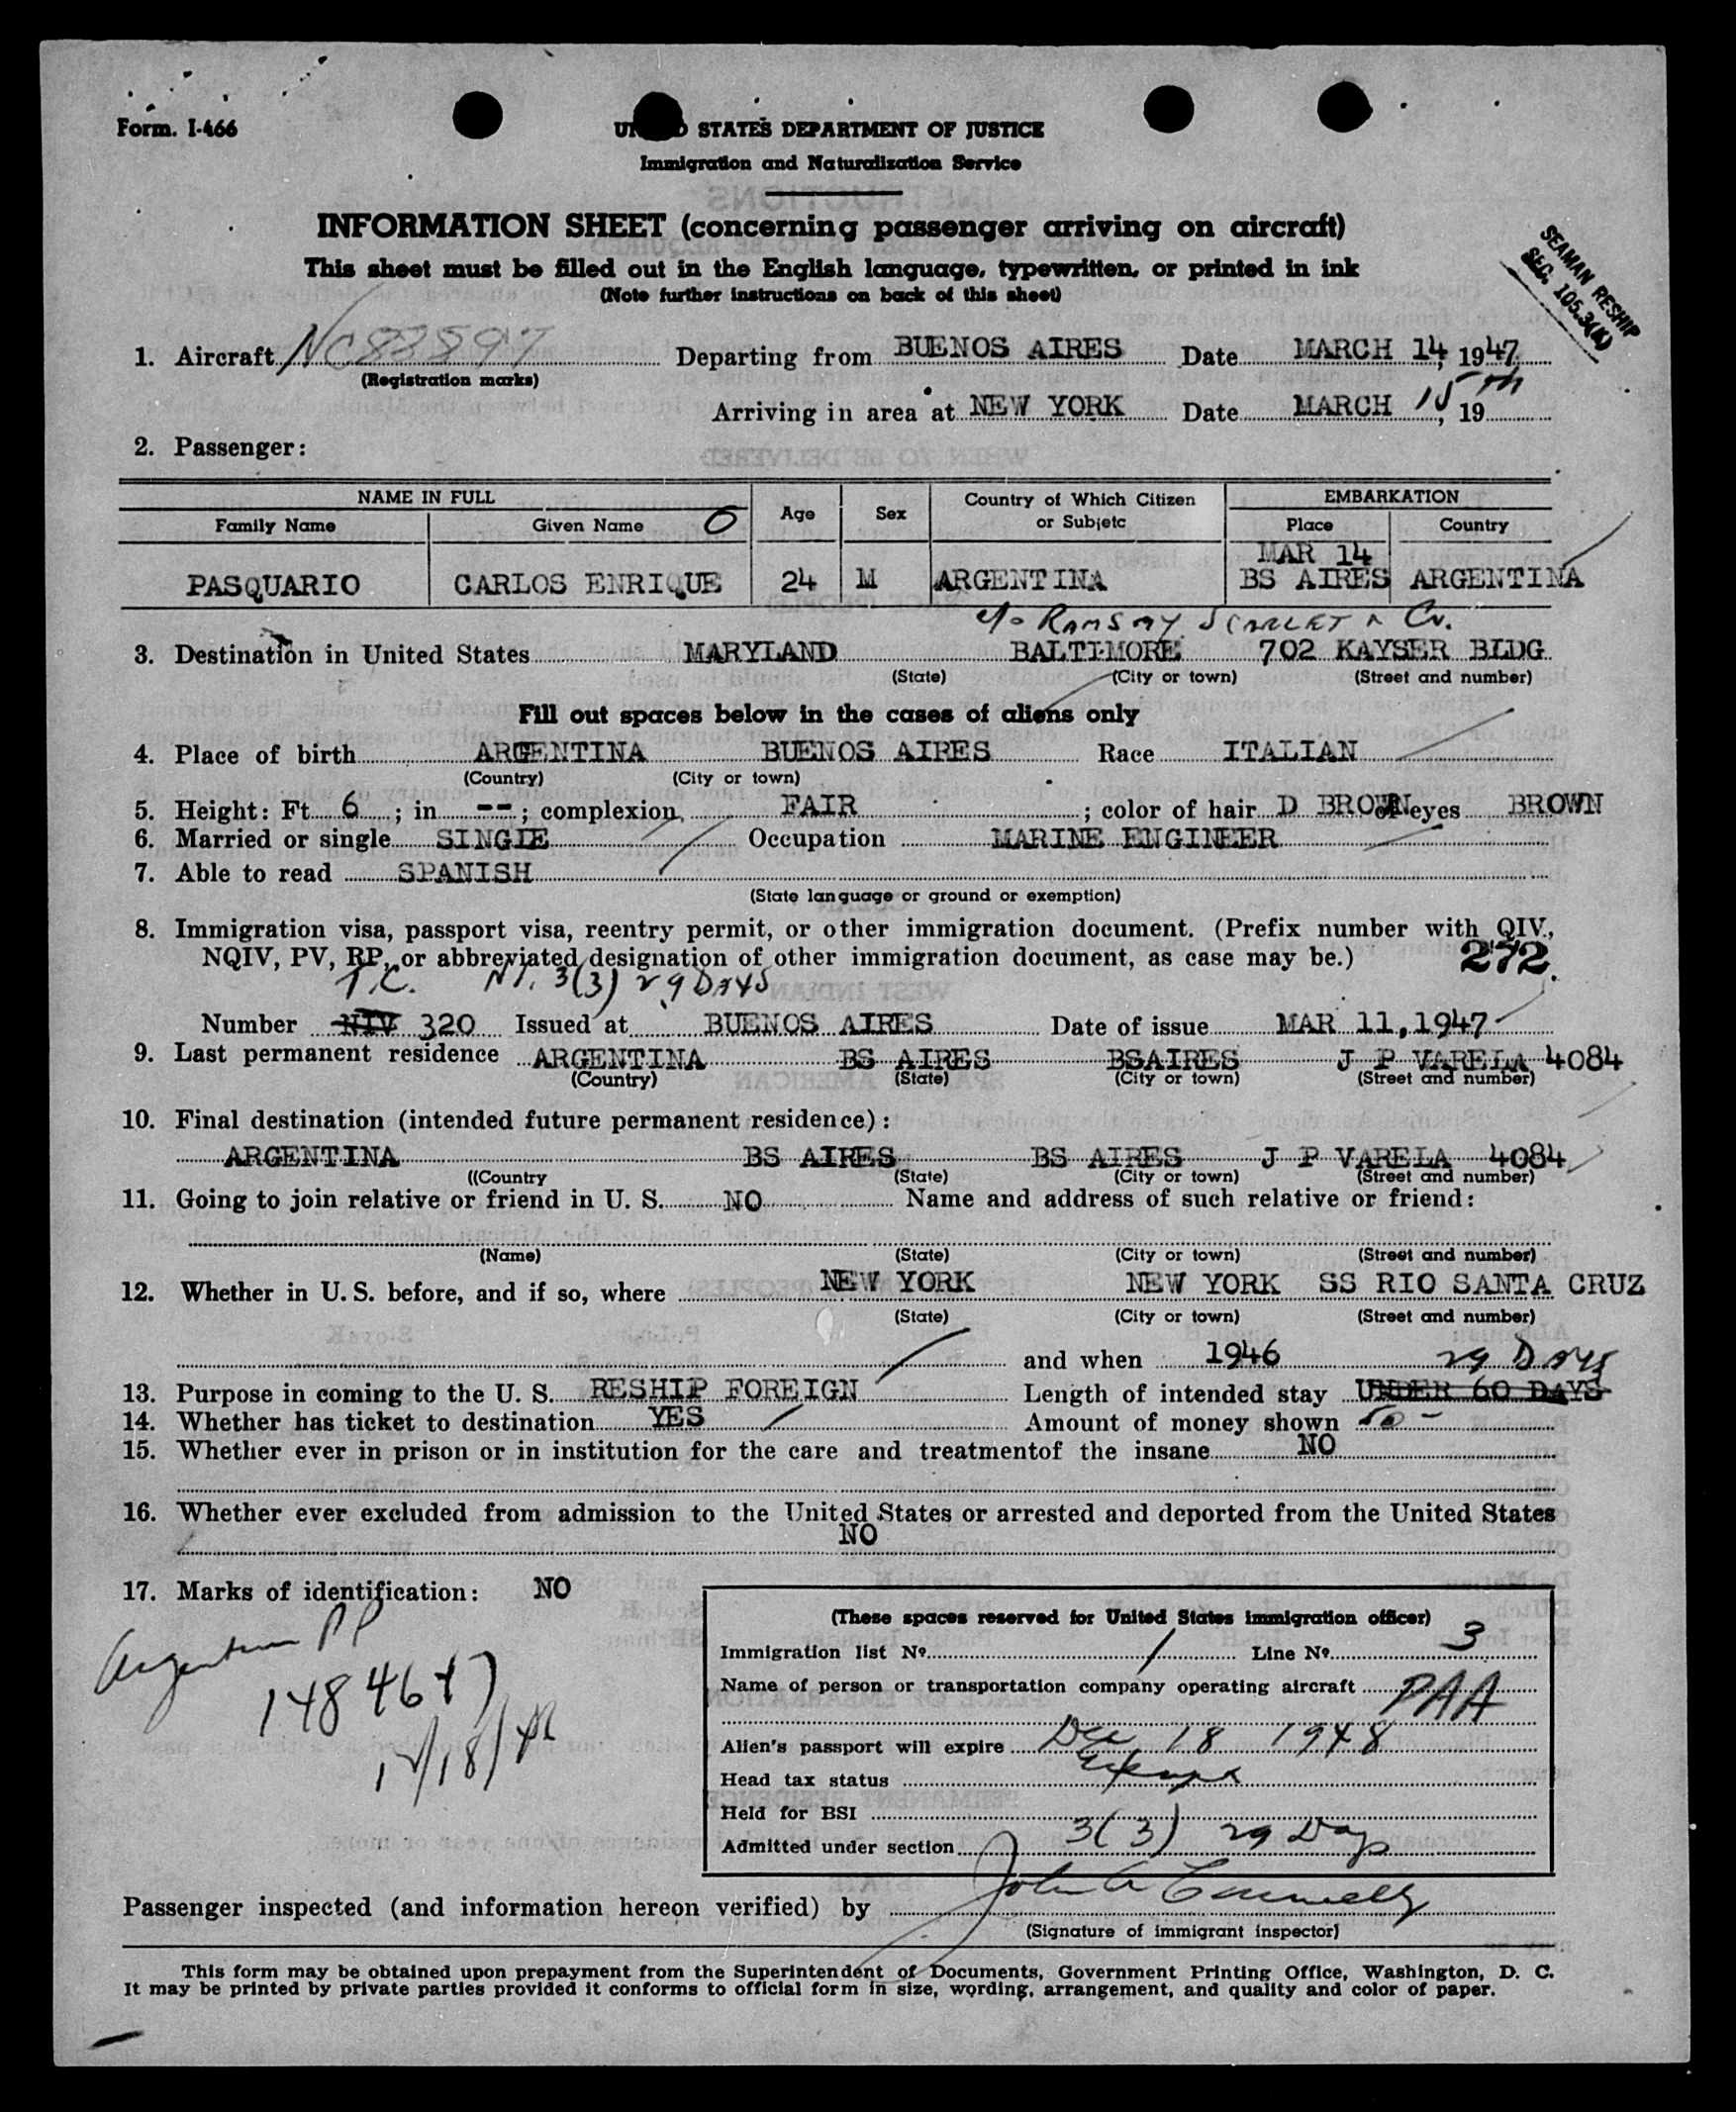 Form. I-466
STATES DEPARTMENT OF JUSTICE
Immigration and Naturalization Service
INFORMATION SHEET (concerning passenger arriving on aircraft)
This sheet must be filled out in the English language, typewritten, or printed in ink
(Note further instructions on back of this sheet)
SEAMAN RESHIP
SEC. 105.3(K)
1. Aircraft NC88897 Departing from BUENOS AIRES Date MARCH 14, 1947
(Registration marks)
Arriving in area at NEW YORK Date MARCH 15th, 19
2. Passenger:
NAME IN FULL Age Sex Country of Which Citizen or Subjetc EMBARKATION
Family Name Given Name O Place Country
MAR 14
PASQUARIO CARLOS ENRIQUE 24 M ARGENTINA BS AIRES ARGENTINA
c/o RAMSAY SCARLET & Co.
3. Destination in United States MARYLAND BALTIMORE 702 KAYSER BLDG
(State) (City or town) (Street and number)
Fill out spaces below in the cases of aliens only
4. Place of birth ARGENTINA BUENOS AIRES Race ITALIAN
(Country) (City or town)
5. Height: Ft 6 ; in -- ; complexion, FAIR ; color of hair D BROWN eyes BROWN
6. Married or single SINGLE Occupation MARINE ENGINEER
7. Able to read SPANISH
(State language or ground or exemption)
8. Immigration visa, passport visa, reentry permit, or other immigration document. (Prefix number with QIV.,
NQIV, PV, RP, or abbreviated designation of other immigration document, as case may be.) 272
T.C. N.I. 3(3) 29 DAYS
Number NIV 320 Issued at BUENOS AIRES Date of issue MAR 11, 1947
9. Last permanent residence ARGENTINA BS AIRES BSAIRES J P VARELA 4084
(Country) (State) (City or town) (Street and number)
10. Final destination (intended future permanent residence):
ARGENTINA BS AIRES BS AIRES J P VARELA 4084
((Country (State) (City or town) (Street and number)
11. Going to join relative or friend in U. S. NO Name and address of such relative or friend:
(Name) (State) (City or town) (Street and number)
12. Whether in U. S. before, and if so, where NEW YORK NEW YORK SS RIO SANTA CRUZ
(State) (City or town) (Street and number)
and when 1946 29 DAYS
13. Purpose in coming to the U. S. RESHIP FOREIGN Length of intended stay UNDER 60 DAYS
14. Whether has ticket to destination YES Amount of money shown 50 -
15. Whether ever in prison or in institution for the care and treatmentof the insane NO
16. Whether ever excluded from admission to the United States or arrested and deported from the United States
NO
17. Marks of identification: NO
Argentine PP
1484647
12/18/46
(These spaces reserved for United States immigration officer)
Immigration list No. 1 Line No. 3
Name of person or transportation company operating aircraft PAA
Alien's passport will expire Dec 18 1948
Head tax status Exempt
Held for BSI
Admitted under section 3(3) 29 Days
Passenger inspected (and information hereon verified) by John A Connelly
(Signature of immigrant inspector)
This form may be obtained upon prepayment from the Superintendent of Documents, Government Printing Office, Washington, D. C.
It may be printed by private parties provided it conforms to official form in size, wording, arrangement, and quality and color of paper.